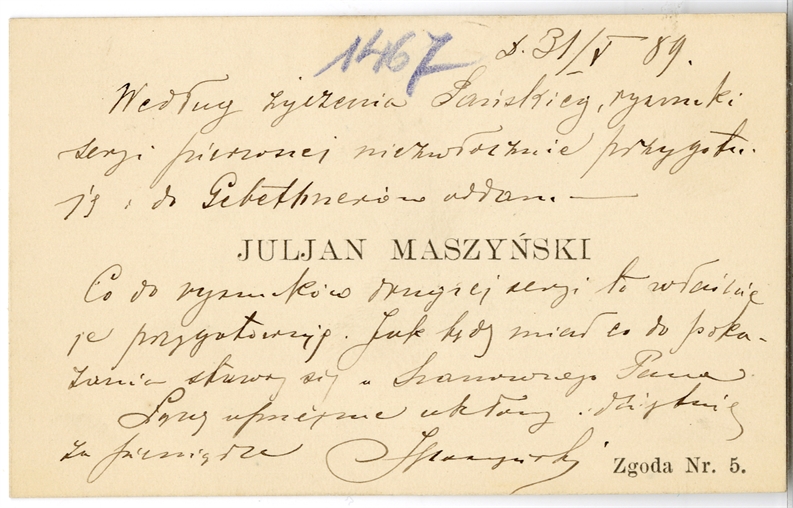 1467
d. 31/V 89.
Według życzenia Pańskieg, rysunki
serji pierwszej niezwłocznie przygotu-
ję i do Gebethnerów oddam. —
JULJAN MASZYŃSKI
Co do rysunków drugiej serji to właśnie
je przygotowuję. Jak będę miał co do poka-
zania stawię się u Szanownego Pana
Łączę uprzejme ukłony i dziękuję
za pieniądze JMaszyński
Zgoda Nr. 5.